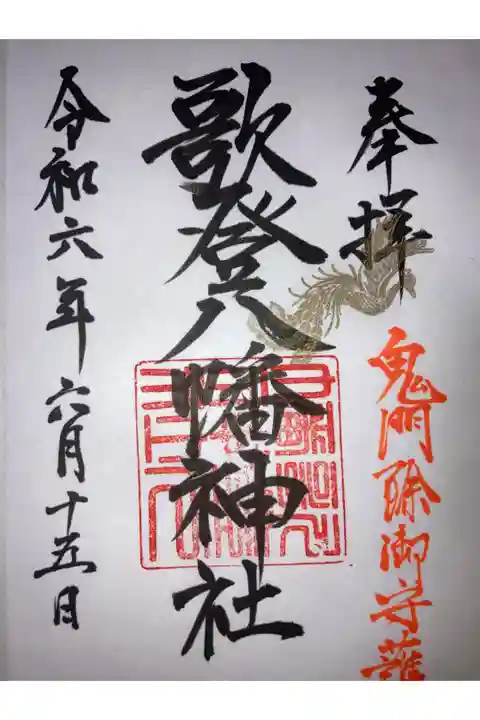 奉拝
鬼門除御守護
歌登八幡神社
令和六年六月十五日